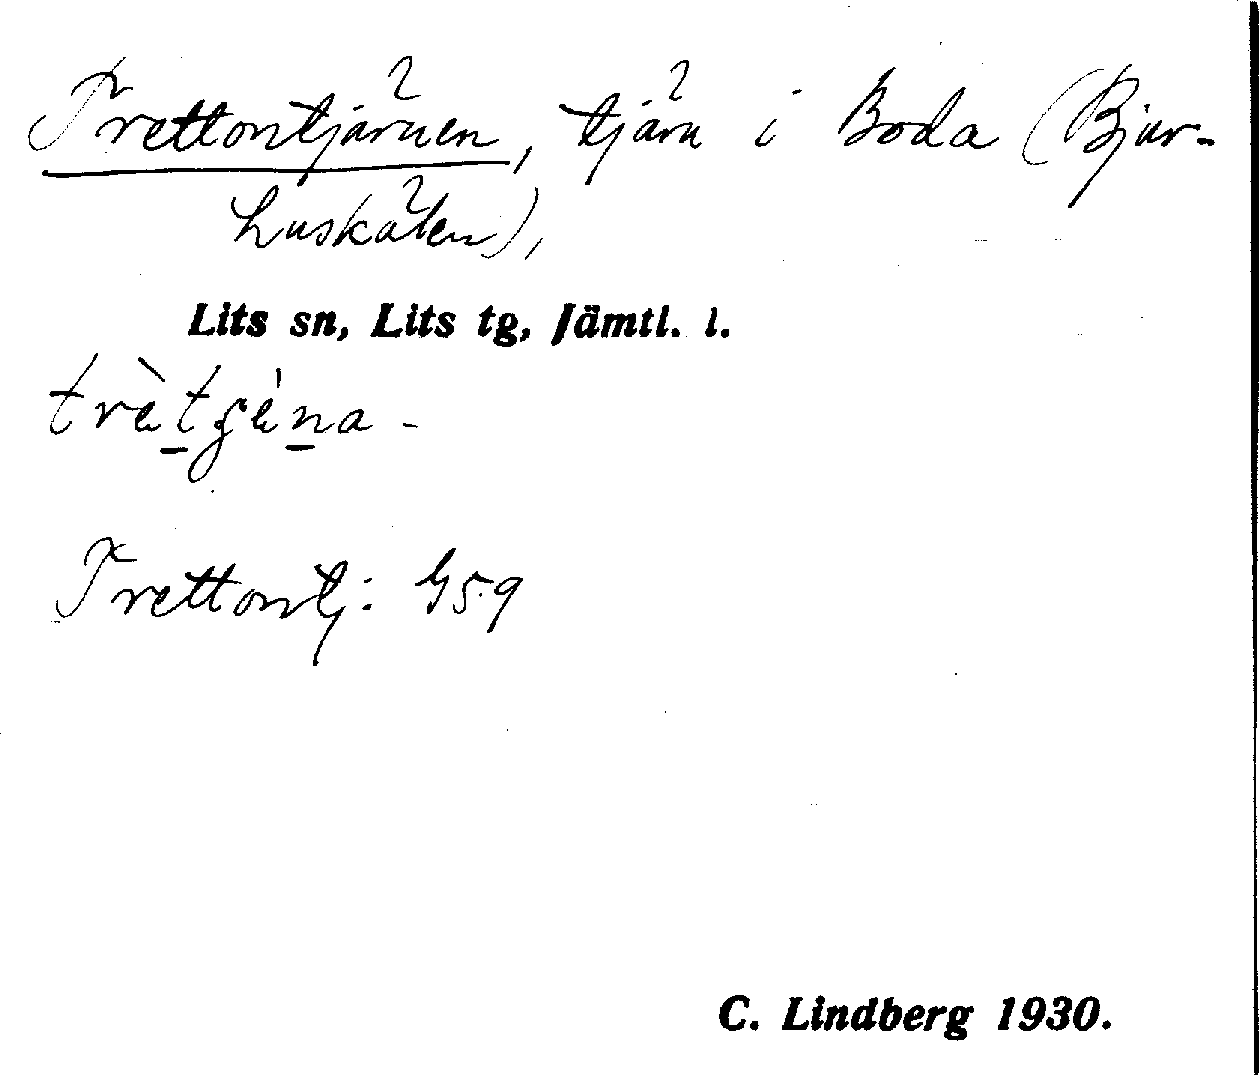 Trettontjärnen, tjärn i Boda (Bjur-
huskälen),
Lits sn, Lits tg, Jämtl. l.
Trettontj: G59
C. Lindberg 1930.